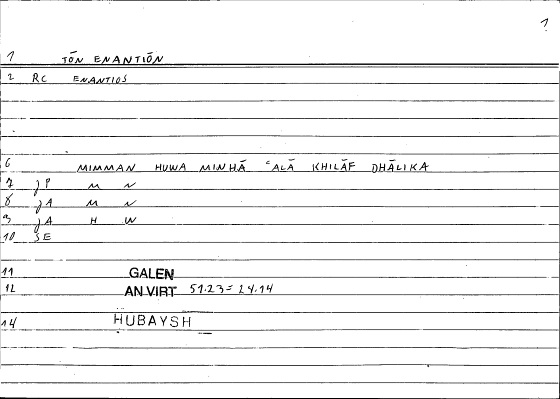 1
1 TŌN ENANTIŌN
2 RC ENANTIOS
6 MIMMAN HUWA MINHĀ ʿALĀ KHILĀF DHĀLIKA
7 JP M N
8 JA M N
9 JA H W
10 SE
11 GALEN
12 AN VIRT 51.23 = 24.14
14 HUBAYSH